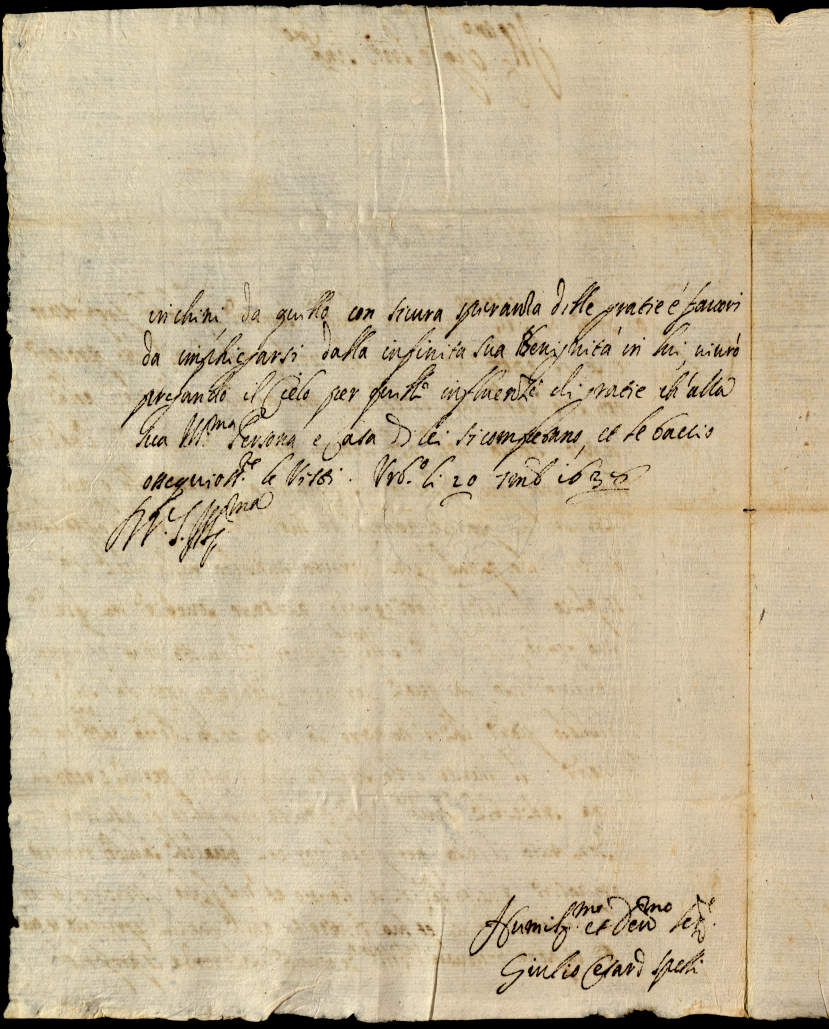 inchini, da quello con sicura speranza delle gratie é favori
da impiegarsi dalla infinita sua Benignità in lui, viurò
pregando il Cielo per quelle influenze di gratie ch'alla
sua Ill.ma Persona e Casa di lei si competano, et le baccio
ossequios.te le Vesti. Urb.o li 20 1636
Di V. S. Ill.ma
Humiliss.mo et Dev.mo Ser.re
Giulio Cesare